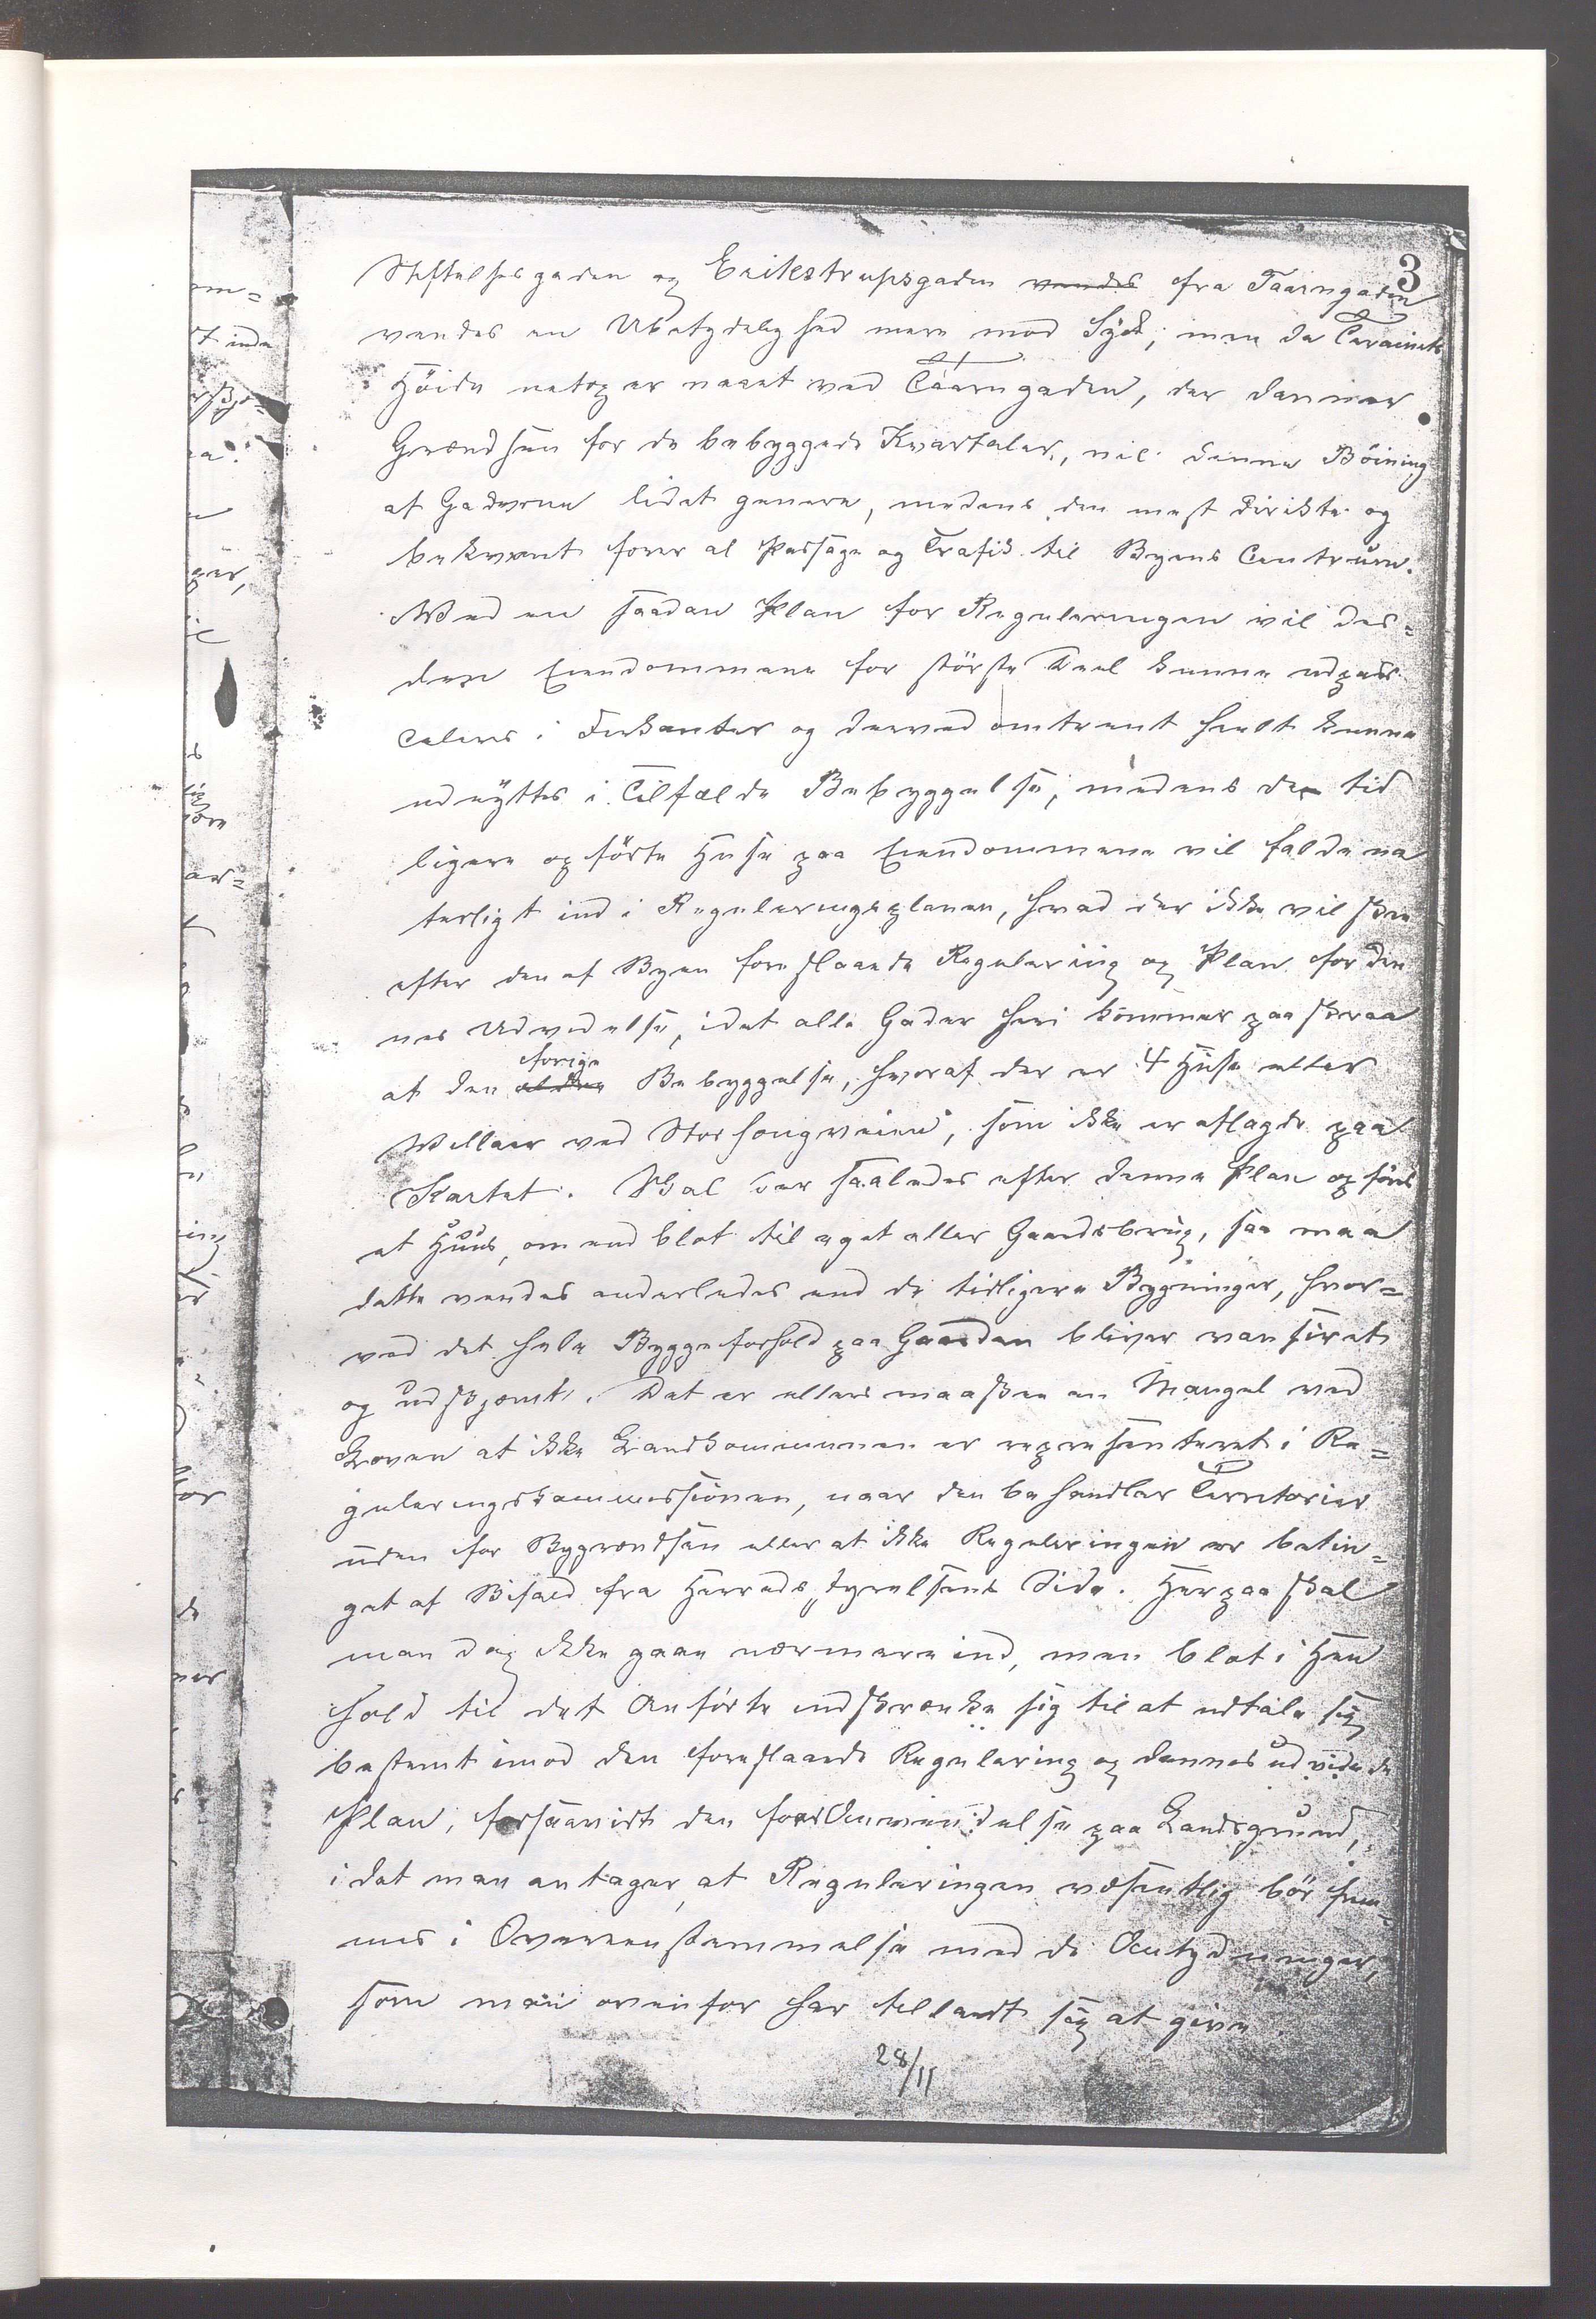 3
Stiftelsesgaden og Erikstrupsgaden vendes fra Taarngaden
vendes en Ubetydelighed mere mod Syd; men da Terainets
Höide netop er naaet ved Taarngaden, der danner
Grændsen for de bebyggede Kvartaler, vil denne Böining
af Gaderne lidet genere, medens den mest direkte og
bekvemt fører al Passage og Trafik til Byens Centrum.
Med en saadan Plan for Reguleringen vil des=
uden Eiendommene for störste Deel kunne udpar
celeres i Firkanter og derved omtrent heelt kunne
udnyttes i Tilfælde Bebyggelse, medens de tid
ligere opförte Huse paa Eiendommene vil falde na
turligt ind i Reguleringsplanen, hvad der ikke vil skee
efter den af Byen foreslaaede Regulering og Plan for den
nes Udvidelse, idet alle Gader heri kommer paa skraa
at den forige Bebyggelse, hvoraf der er 4 Huse eller
Willaer ved Storhougveien, som ikke er aflagde paa
Kartet. Skal der saaledes efter denne Plan opföres
et Huus, om end blot til eget eller Gaardsbrug, saa maa
dette vendes anderledes end de tidligere Bygninger, hvor=
ved det hele Byggeforhold paa Gaarden bliver vansiret
og udskjæmt. Det er ellers maaskee en Mangel ved
Loven at ikke Landkommunen er repræsenteret i Re=
guleringskommissionen, naar den behandler Territorier
uden for Bygrændsen eller at ikke Reguleringen er betin=
get af Bifald fra Herredsstyrelsens Side. Herpaa skal
man dog ikke gaae nærmere ind, men blot i Hen
hold til det Anförte indskrænke sig til at udtale sig
bestemt imod den foreslaaede Regulering og dennes udvidede
Plan, forsaavidt den paa Landsgrund,
idet man antager, at Reguleringen væsentlig bör frem=
mes i Overeenstemmelse med de Antydninger,
som man ovenfor har tilladt sig at give.
28/11